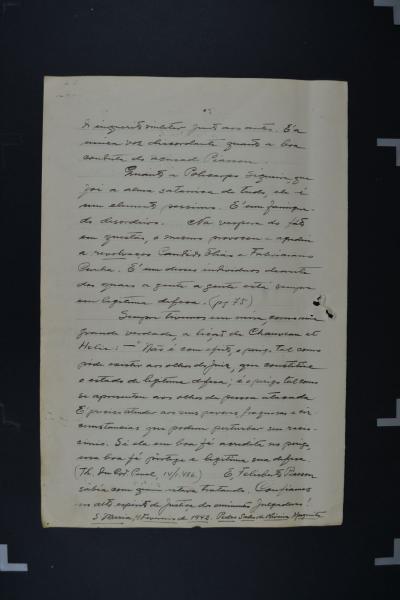 do inquerito militar junto aos autos. É a
unica voz discordante quanto a boa
conduta do acusado Pearson.
Quanto a Policarpo Siqueira, que
foi a alma satanica de tudo, ele é
um elemento pessimo. É um
do desordeiro. Na vespera do fáto
em questão, o mesmo provocou e
a revolver Candido Elias e Fabriciano
Cunha. É um desses individuos deante
dos quaes a gente a gente está sempre
em legitima defesa. (pg 75)
Sempre tivemos em mira como uma
grande verdade, a lição de Chauveau et
Helie: — "Não é com efeito, o perigo tal como
póde existir aos olhos do juiz, que constitue
o estado de legitima defesa; é o perigo tal como
se apresentou aos olhos da pessoa atacada.
É preciso atender aos seus pavores, fraquezas e cir
cumstancias que podem perturbar seu racio-
cinio. Si ele em boa fé acredita no perigo,
essa boa fé protege a legitima sua defesa
(Th. du Cod. Penal, IV/1.486.) E, Felisberto Pearson
sabia com quem estava tratando. Confiamos
no alto espirito de justiça dos eminentes julgadores!
S. Maria, Fevereiro de 1942. Pedro Sales de Oliveira Mesquita